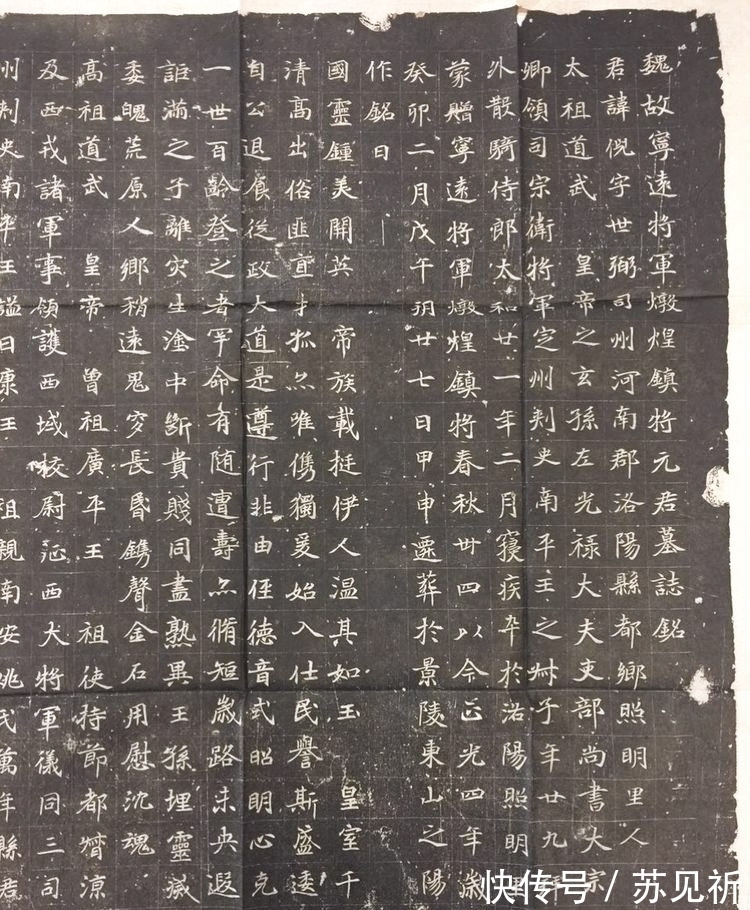 魏故寧遠將軍燉煌鎮將元君墓誌銘
君諱倪字世弼司州河南郡洛陽縣都鄉照明里人
太祖道武 皇帝之玄孫左光祿大夫吏部尚書大宗
卿領司宗衛將軍定州刾史南平王之子年廿九
外散騎侍郎太和廿一年二月寢疾卒於洛陽照明里
蒙贈寧遠將軍燉煌鎮將春秋卌四以今正光四年歲
癸卯二月戊午朔廿七日甲申遷葬於景陵東山之陽
作銘曰
國靈鍾美開英 帝族載挺伊人溫其如玉 皇室千
清高出俗匪直才孤亦唯儁獨爰始入仕民譽斯盛逶
自公退食從政大道是尊行非由徑德音式昭明心克
一世百齡登之者罕命有隨遭壽亦脩短歲路未央遐
詎滿之子離灾生塗中斷貴賤同盡孰異王孫埋靈滅
委魄荒原人鄉稍遠鬼穸長昏鐫聲金石用慰沈魂
高祖道武 皇帝 曾祖廣平王 祖使持節都督涼
及西戎諸軍事領護西域校尉征西大將軍儀同三司
州刾史南平王謚曰康王 祖親南安姚氏萬年縣君
快传号 / 苏见祈